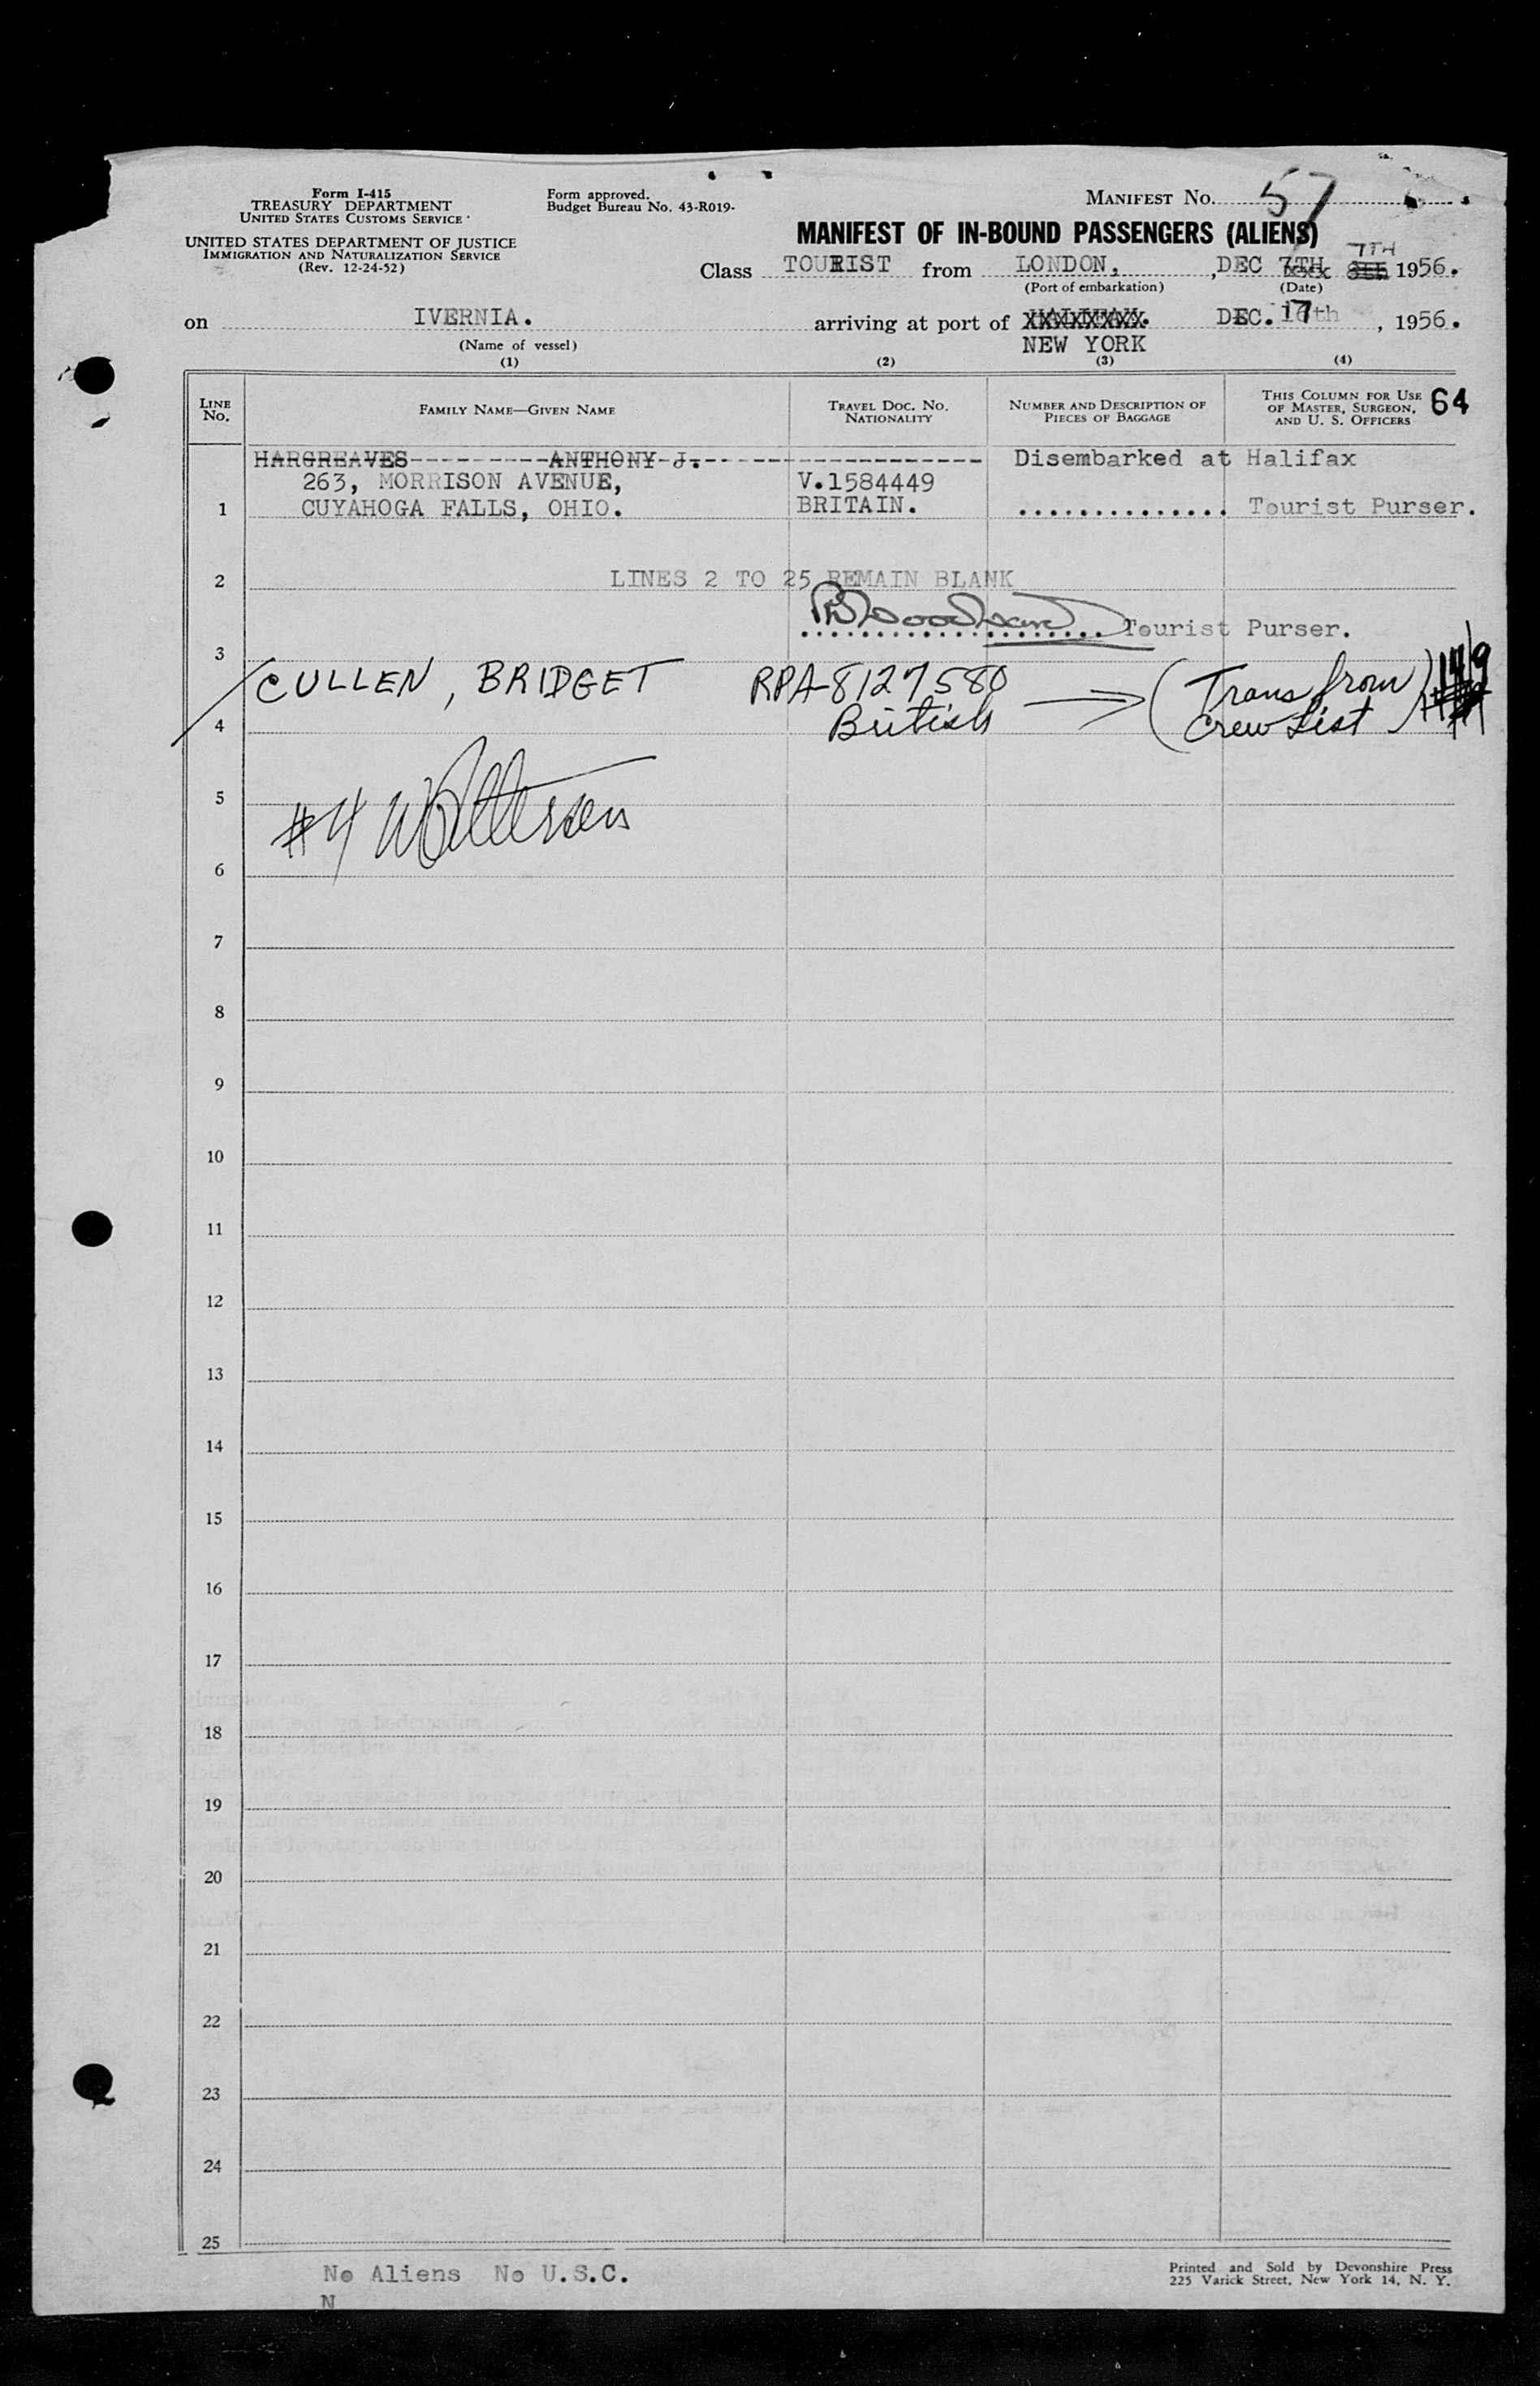 Form I-415
TREASURY DEPARTMENT
UNITED STATES CUSTOMS SERVICE
UNITED STATES DEPARTMENT OF JUSTICE
IMMIGRATION AND NATURALIZATION SERVICE
(Rev. 12-24-52)
Form approved.
Budget Bureau No. 43-R019-
MANIFEST No. 57
MANIFEST OF IN-BOUND PASSENGERS (ALIENS)
7TH
Class TOURIST from LONDON, , DEC 7TH 1956.
(Port of embarkation) (Date)
on IVERNIA. arriving at port of DEC. 17th , 1956.
(Name of vessel) NEW YORK
(1) (2) (3) (4)
LINE No. FAMILY NAME—GIVEN NAME TRAVEL DOC. NO. NATIONALITY NUMBER AND DESCRIPTION OF PIECES OF BAGGAGE THIS COLUMN FOR USE OF MASTER, SURGEON, AND U. S. OFFICERS 64
HARGREAVES---------ANTHONY J.------------------ Disembarked at Halifax
263, MORRISON AVENUE, V.1584449
1 CUYAHOGA FALLS, OHIO. BRITAIN. .............. Tourist Purser.
2 LINES 2 TO 25 REMAIN BLANK
.................... Tourist Purser.
3
CULLEN, BRIDGET RPA-8127580 (Trans from
4 British Crew List)
5
#4
6
7
8
9
10
11
12
13
14
15
16
17
18
19
20
21
22
23
24
25
No Aliens No U.S.C.
N
Printed and Sold by Devonshire Press
225 Varick Street, New York 14, N. Y.